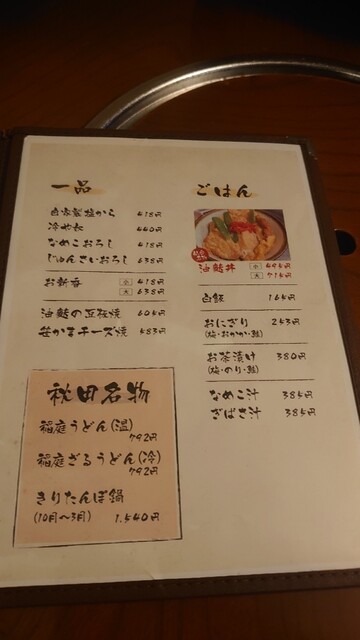 一品
自家製塩から 418円
冷やっこ 440円
なめこおろし 418円
じゅんさいおろし 638円
お新香 小 418円
大 638円
油鯖の豆板焼 605円
笹かまチーズ焼 583円
秋田名物
稲庭うどん(温)
792円
稲庭ざるうどん(冷)
792円
きりたんぽ鍋
(10月〜3月) 1,540円
ごはん
油麩丼 小 495円
大 715円
白飯 165円
おにぎり 253円
(梅・おかか・鮭)
お茶漬け 380円
(梅・のり・鮭)
なめこ汁 385円
ぎばさ汁 385円